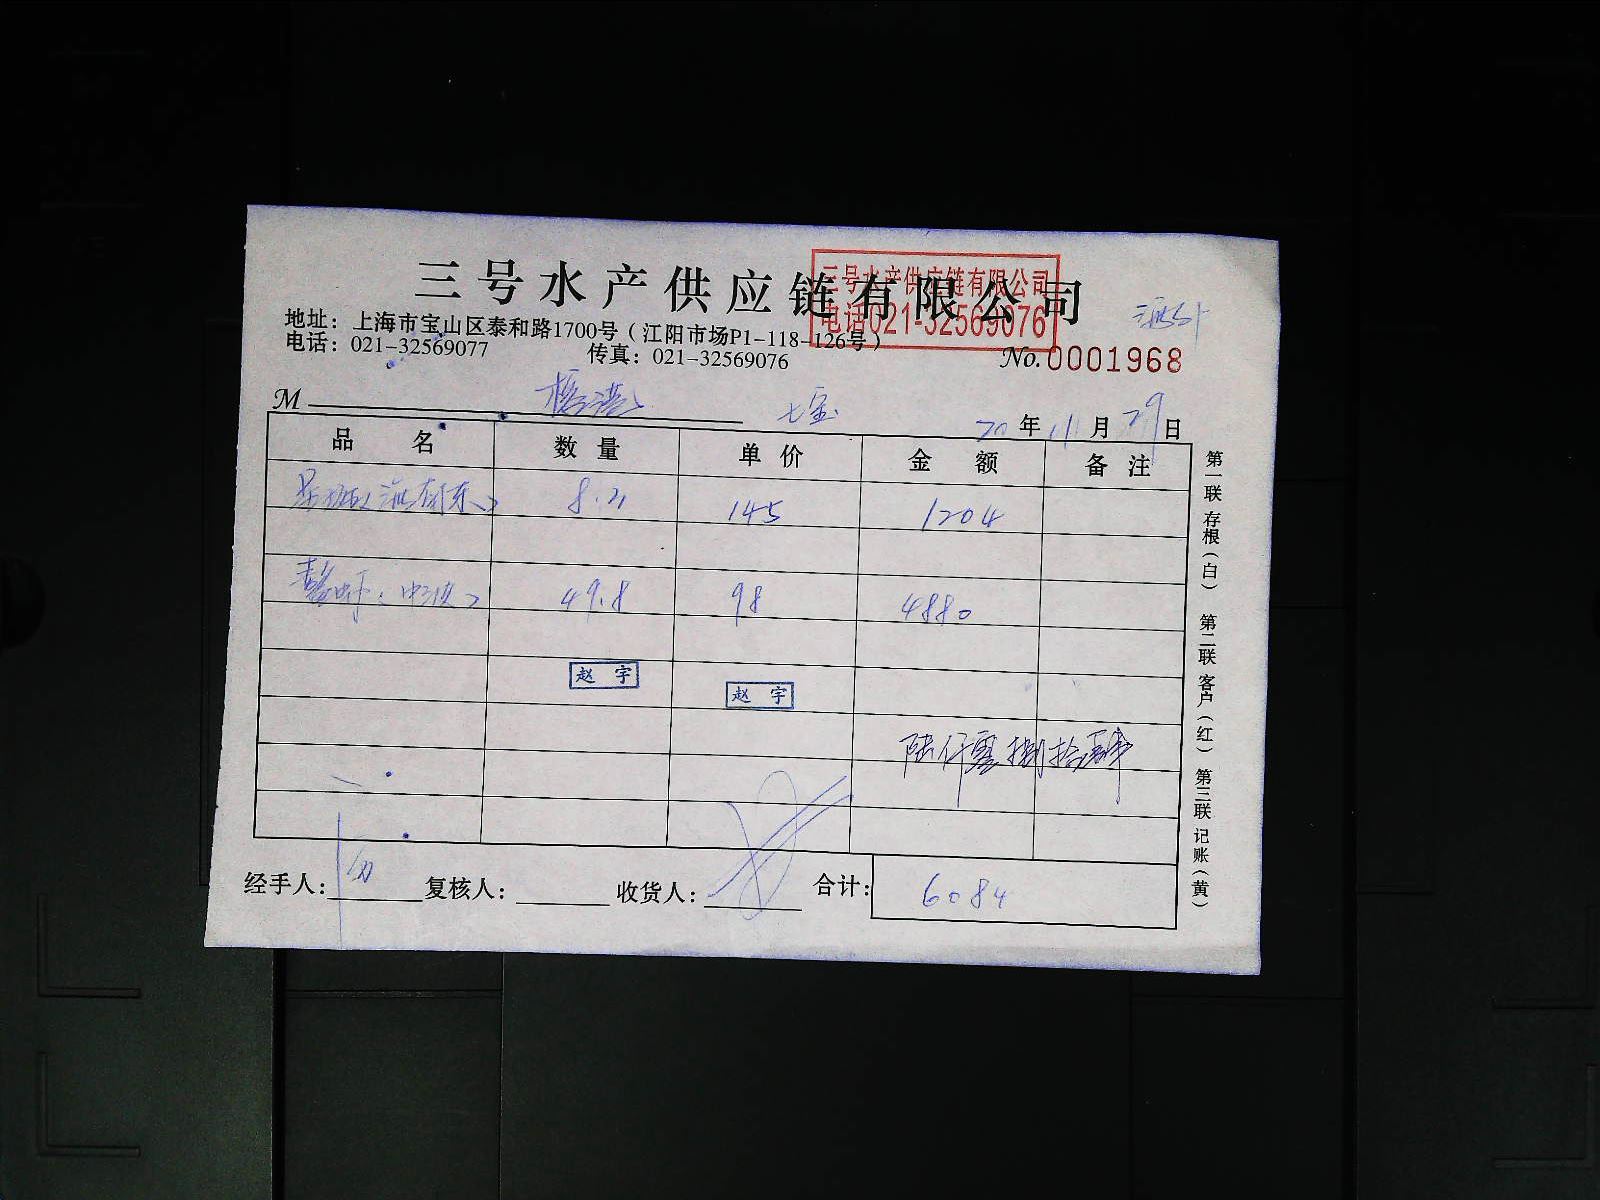 三号水产供应链有限公司
三号水产供应链有限公司
电话021-32569076
地址：上海市宝山区泰和路1700号（江阳市场P1-118-126号）
电话：021-32569077 传真：021-32569076
No.0001968
M 七宝
20年11月29日
品名 数量 单价 金额 备注
145 1204
49.8 98 4880
赵宇
赵宇
陆仟零捌拾肆
经手人： 复核人： 收货人： 合计：6084
第一联存根（白） 第二联客户（红） 第三联记账（黄）